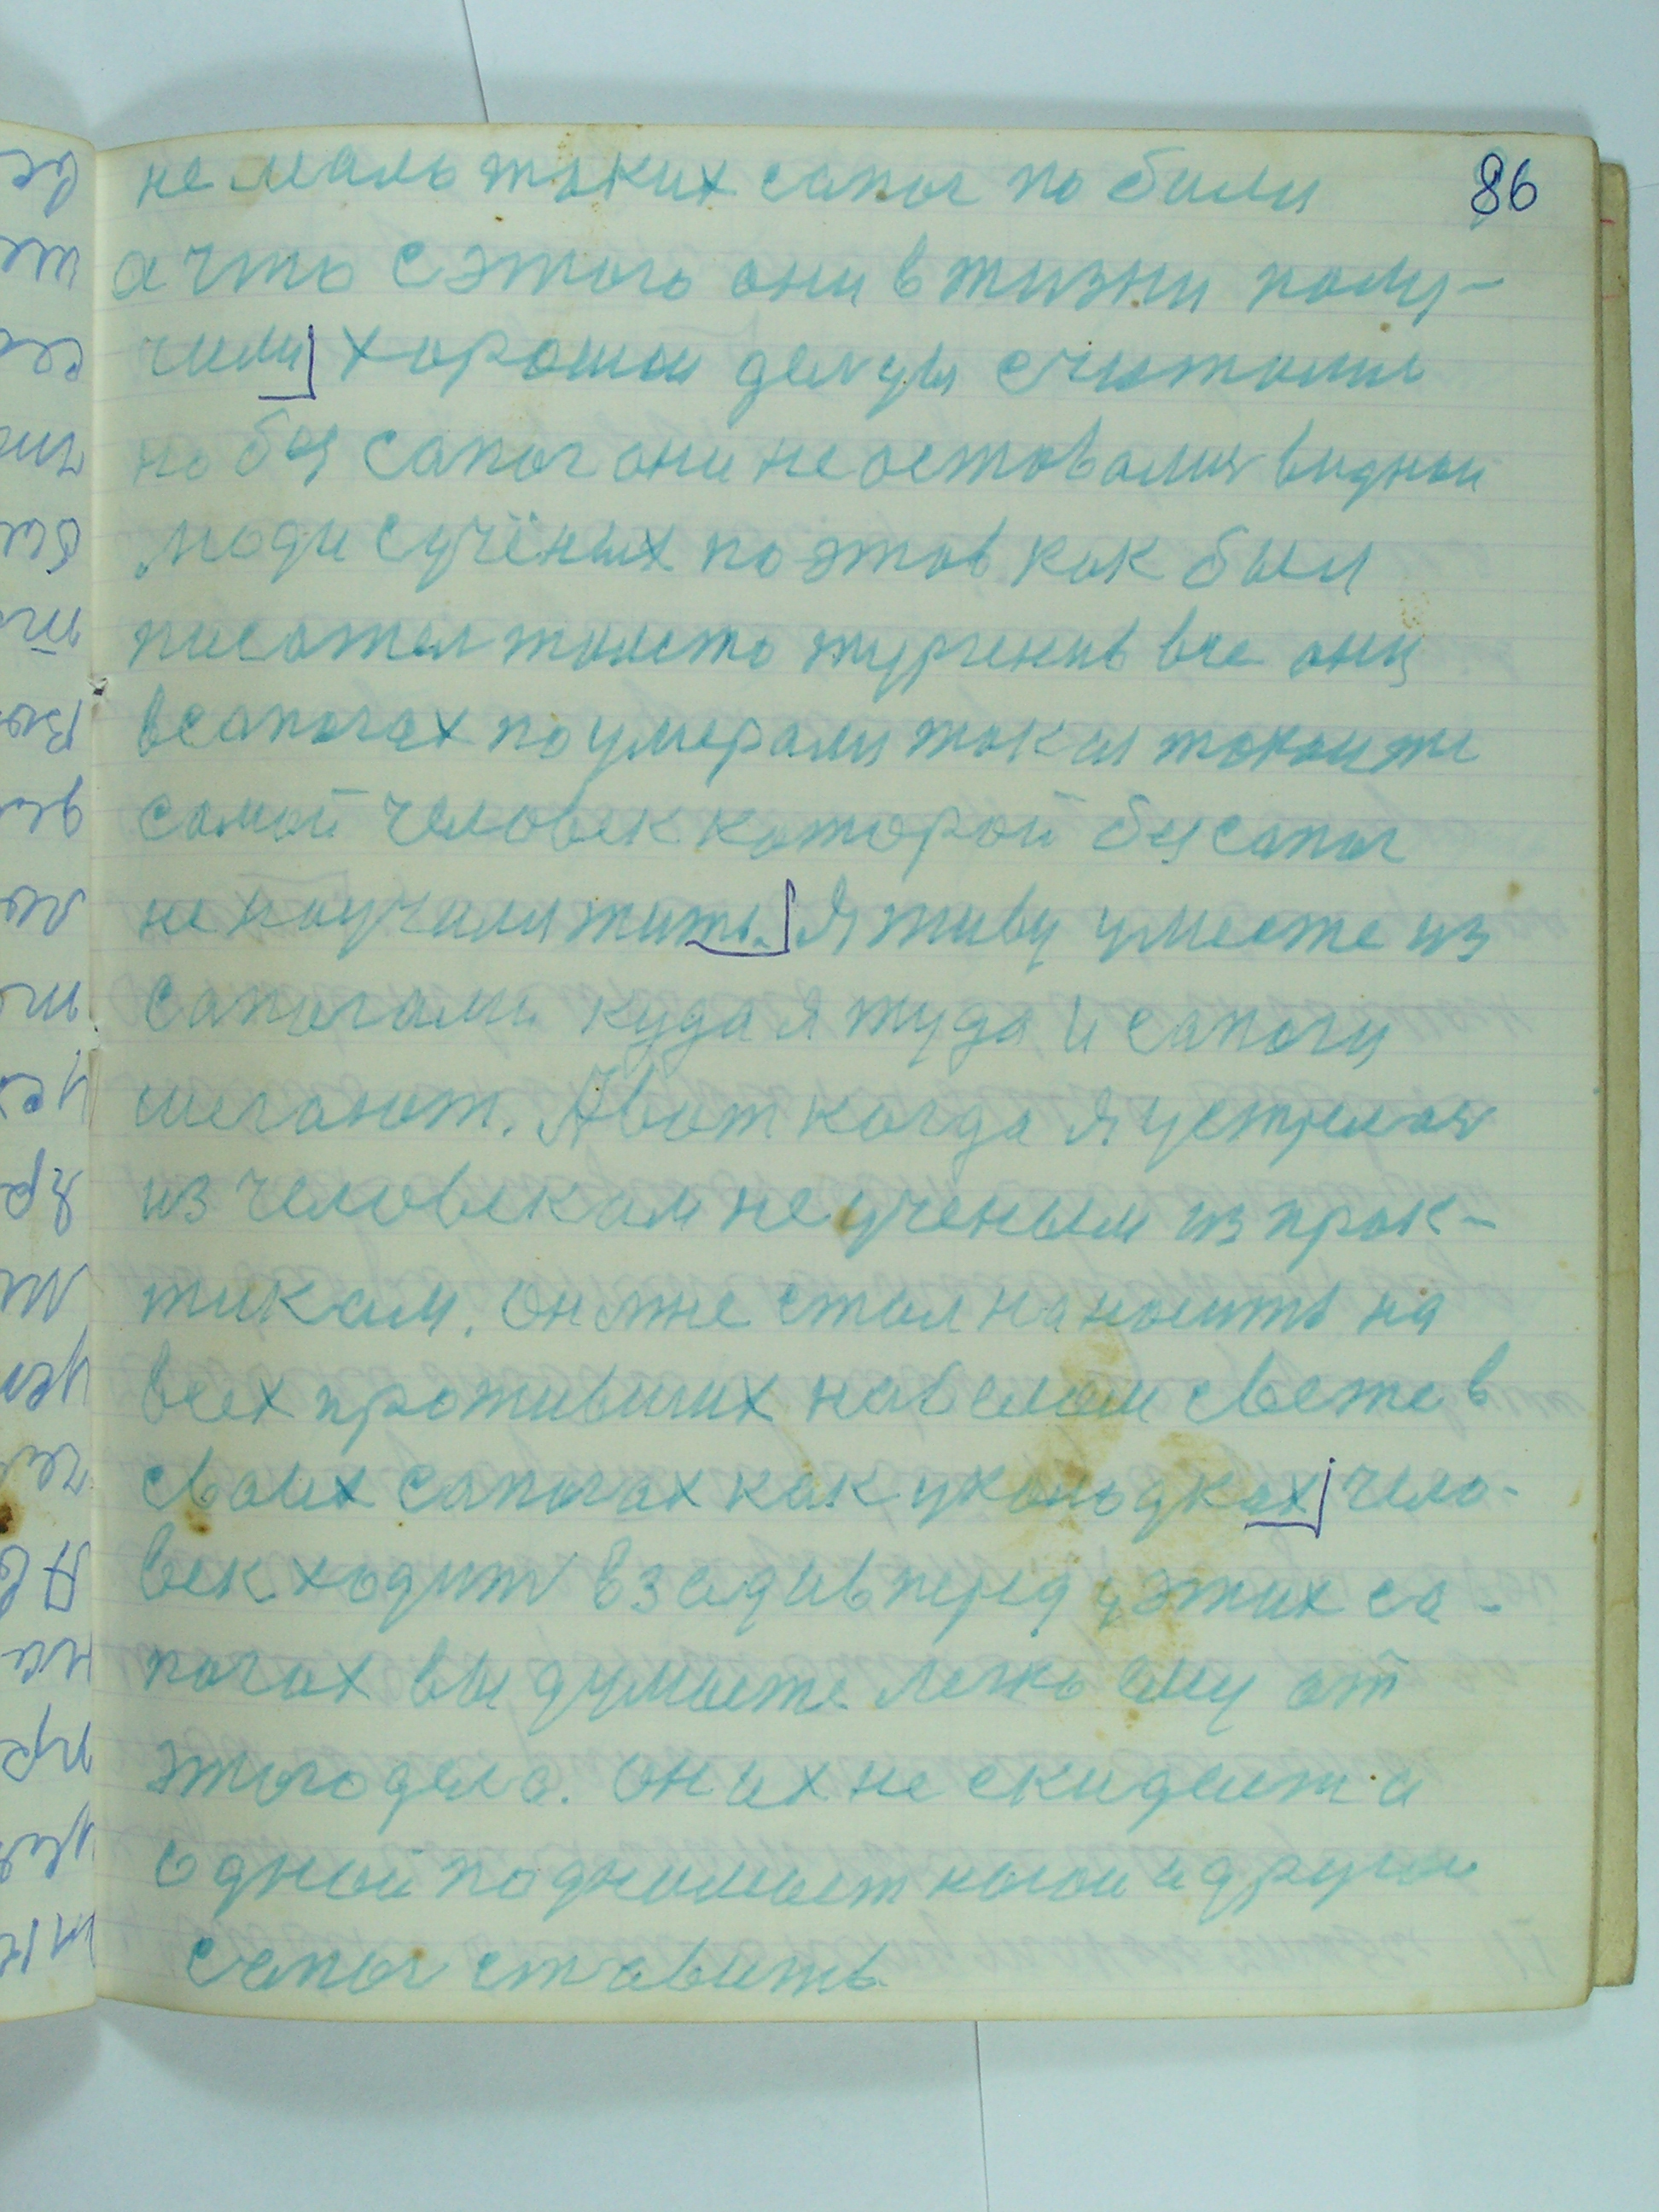 86
не мало таких сапог по били
а что с этого они в жизни полу-
чили хорошои делцы считались
но без сапог они не оставались видной
люди с учёных поэтов как был
писател толсто тургенив все они
в сапогах поумерали такои такои же
самой человек которой без сапог
не научили жить. Я живу умеоте из
сапогами куда я туда и сапоги
шегают. А вот когда я устрелся
из человекам не ученым из прак-
тикам. Он мне стал наносить на
всех проживших на белом свете в
своих сапогах как у колодках чело-
век ходит взади вперед у этих са-
погах вы думаете легко ему от
этого дела. Он их не скидает а
одной поднимает ногои а другои
сапог ставить